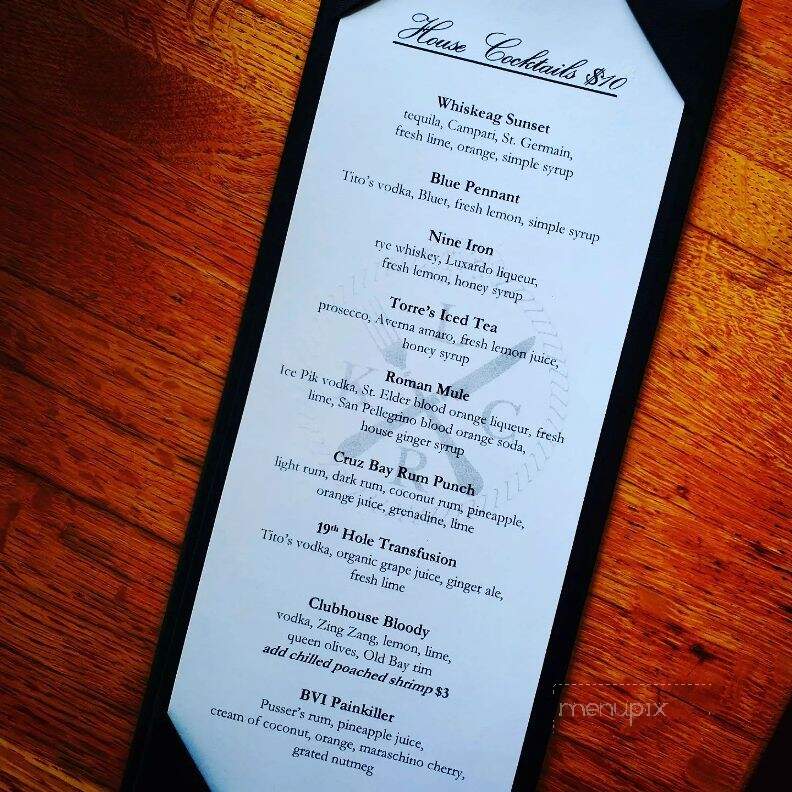 House Cocktails $10
Whiskeag Sunset
tequila, Campari, St. Germain,
fresh lime, orange, simple syrup
Blue Pennant
Tito's vodka, Bluet, fresh lemon, simple syrup
Nine Iron
rye whiskey, Luxardo liqueur,
fresh lemon, honey syrup
Torre's Iced Tea
prosecco, Averna amaro, fresh lemon juice,
honey syrup
Roman Mule
Ice Pik vodka, St. Elder blood orange liqueur, fresh
lime, San Pellegrino blood orange soda,
house ginger syrup
Cruz Bay Rum Punch
light rum, dark rum, coconut rum, pineapple,
orange juice, grenadine, lime
19th Hole Transfusion
Tito's vodka, organic grape juice, ginger ale,
fresh lime
Clubhouse Bloody
vodka, Zing Zang, lemon, lime,
queen olives, Old Bay rim
add chilled poached shrimp $3
BVI Painkiller
Pusser's rum, pineapple juice,
cream of coconut, orange, maraschino cherry,
grated nutmeg
menupix